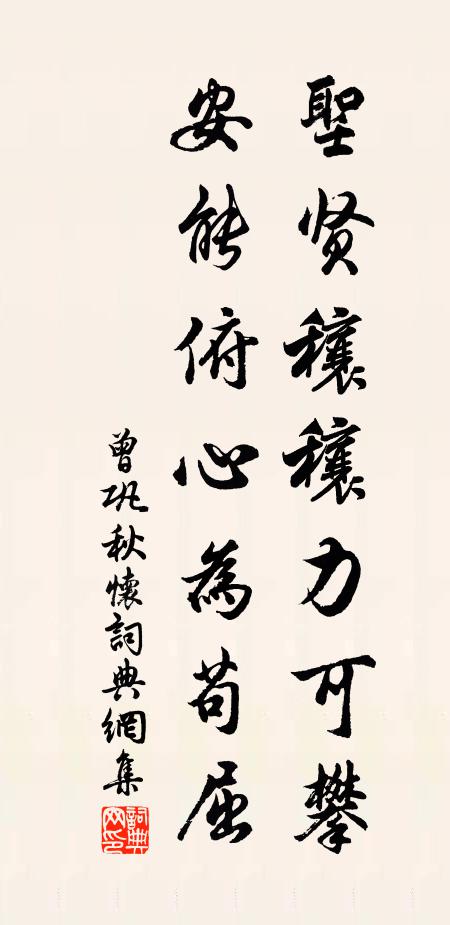 聖贤穰穰力可攀
安能俯心為苟屈
曾巩秋懷詞典網集
詞典網印